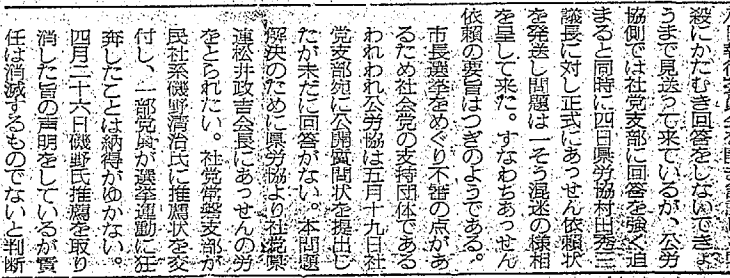 殺にかたむき回答をしないできょ
うまで見送って来ているが、公労
協側では社党支部に回答を強く迫
まると同時に四日県労協村田秀三
議長に対し正式にあっせん依頼状
を発送し問題は一そう混迷の様相
を呈して来た。すなわちあっせん
依頼の要旨はつぎのようである。
市長選挙をめぐり不審の点があ
るため社会党の支持団体である
われわれ公労協は五月十九日社
党支部宛に公開質問状を提出し
たが未だに回答がない。本問題
解決のために県労協より社党県
連松井政吉会長にあっせんの労
をとられたい。社党常磐支部が
民社系磯野清治氏に推薦状を交
付し、一部党員が選挙運動に狂
奔したことは納得がゆかない。
四月二十六日磯野氏推薦を取り
消した旨の声明をしているが責
任は消滅するものでないと判断